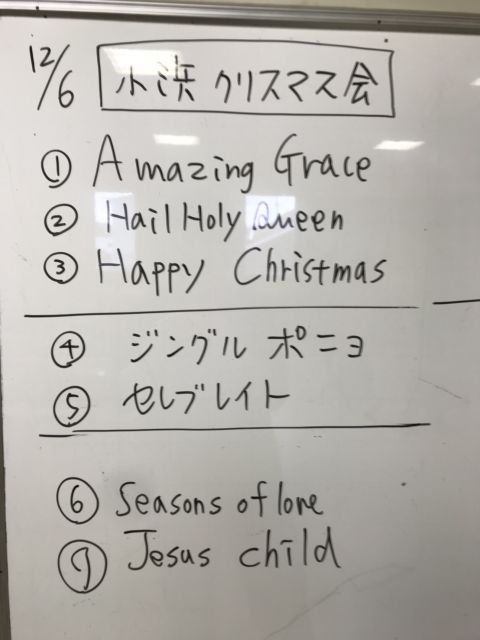 12/6 小浜 クリスマス会
① Amazing Grace
② Hail Holy Queen
③ Happy Christmas
④ ジングル ポニョ
⑤ セレブレイト
⑥ Seasons of love
⑦ Jesus child